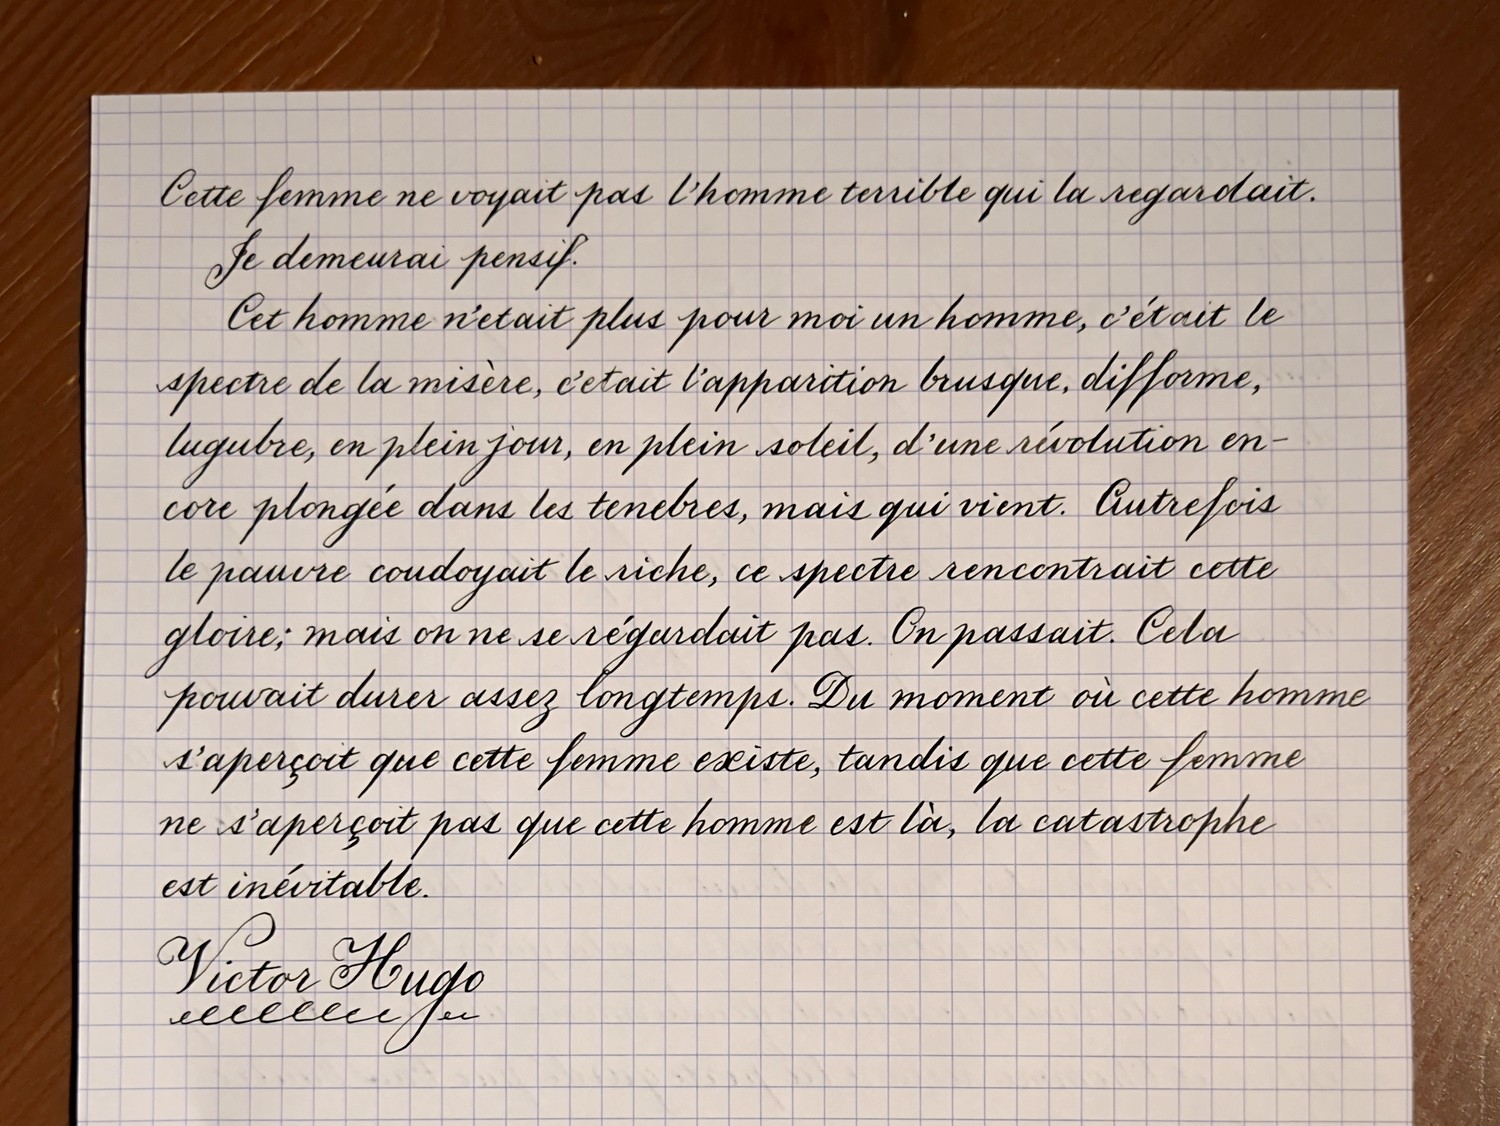 Cette femme ne voyait pas l'homme terrible qui la regardait.
Je demeurai pensif.
Cet homme n'etait plus pour moi un homme, c'était le
spectre de la misère, c'etait l'apparition brusque, difforme,
lugubre, en plein jour, en plein soleil, d'une révolution en-
core plongée dans les tenebres, mais qui vient. Autrefois
le pauvre coudoyait le riche, ce spectre rencontrait cette
gloire; mais on ne se régardait pas. On passait. Cela
pouvait durer assez longtemps. Du moment où cette homme
s'aperçoit que cette femme existe, tandis que cette femme
ne s'aperçoit pas que cette homme est là, la catastrophe
est inévitable.
Victor Hugo